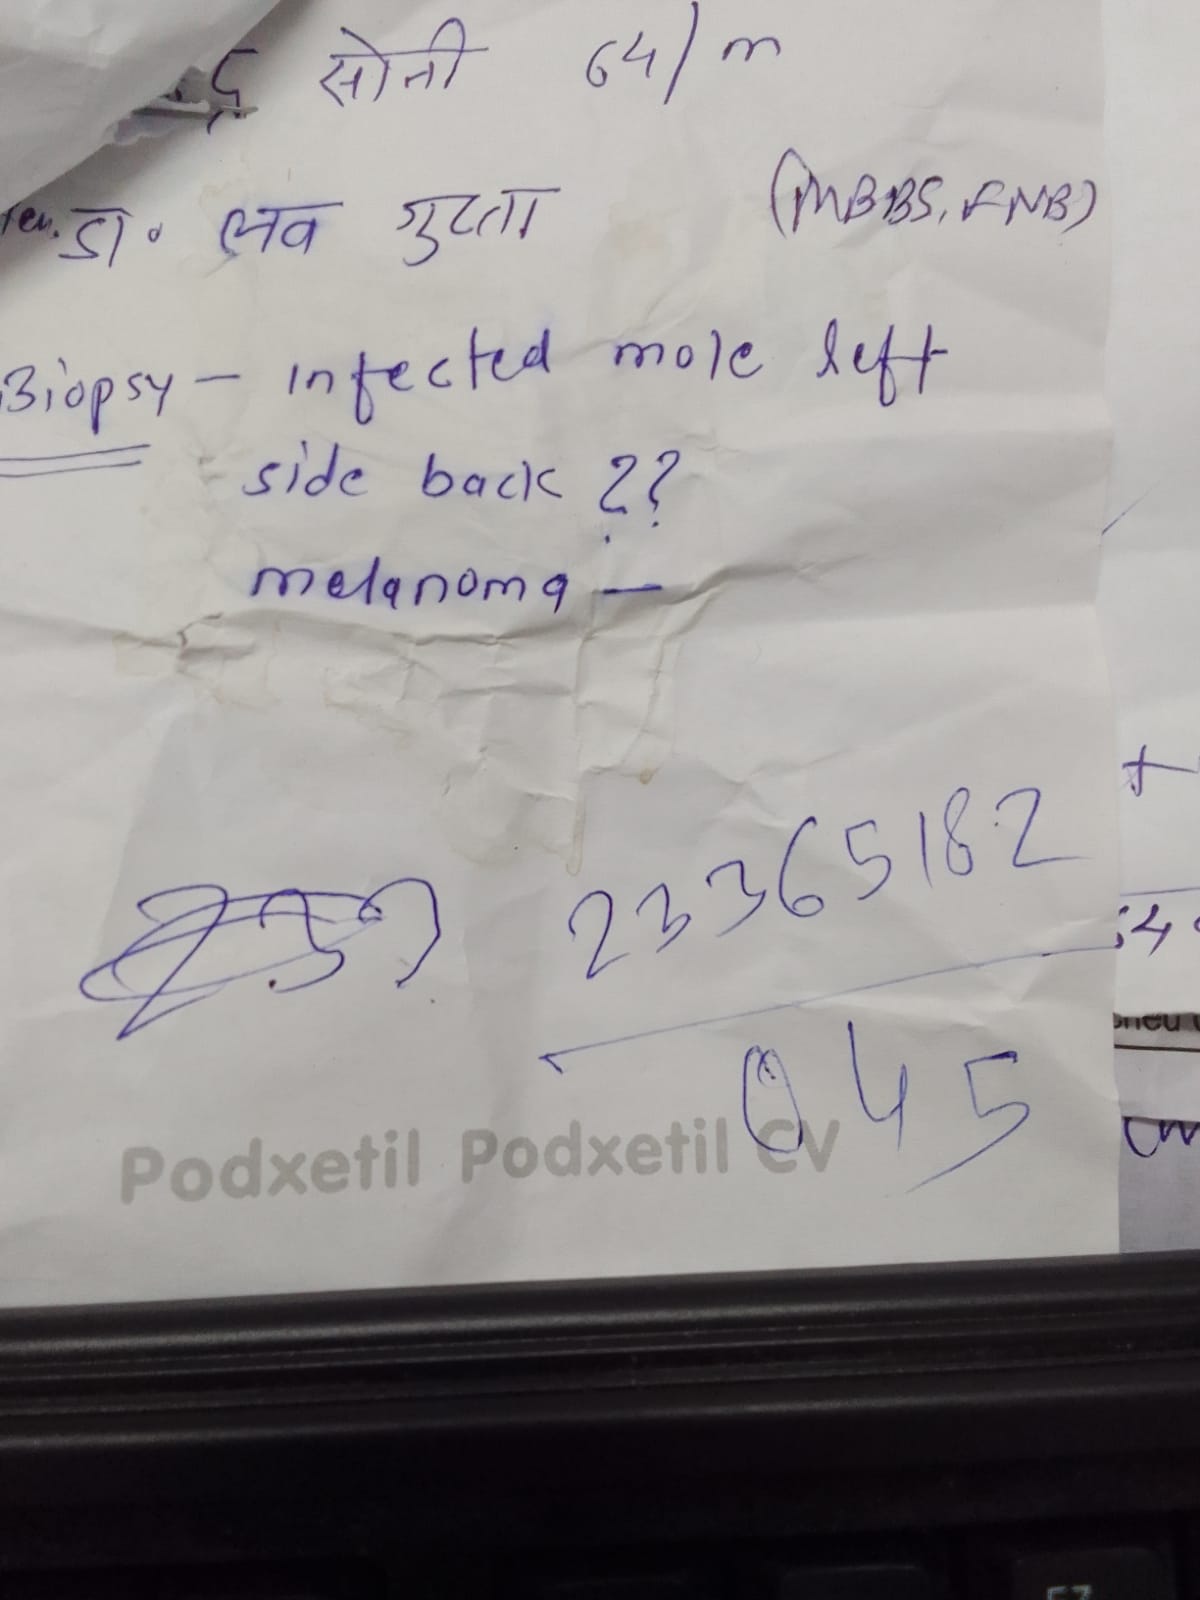 सोनी 64/m
डा. लव गुप्ता (MBBS, FNB)
Biopsy - infected mole left
side back ??
melanoma -
23365182
045
Podxetil Podxetil CV